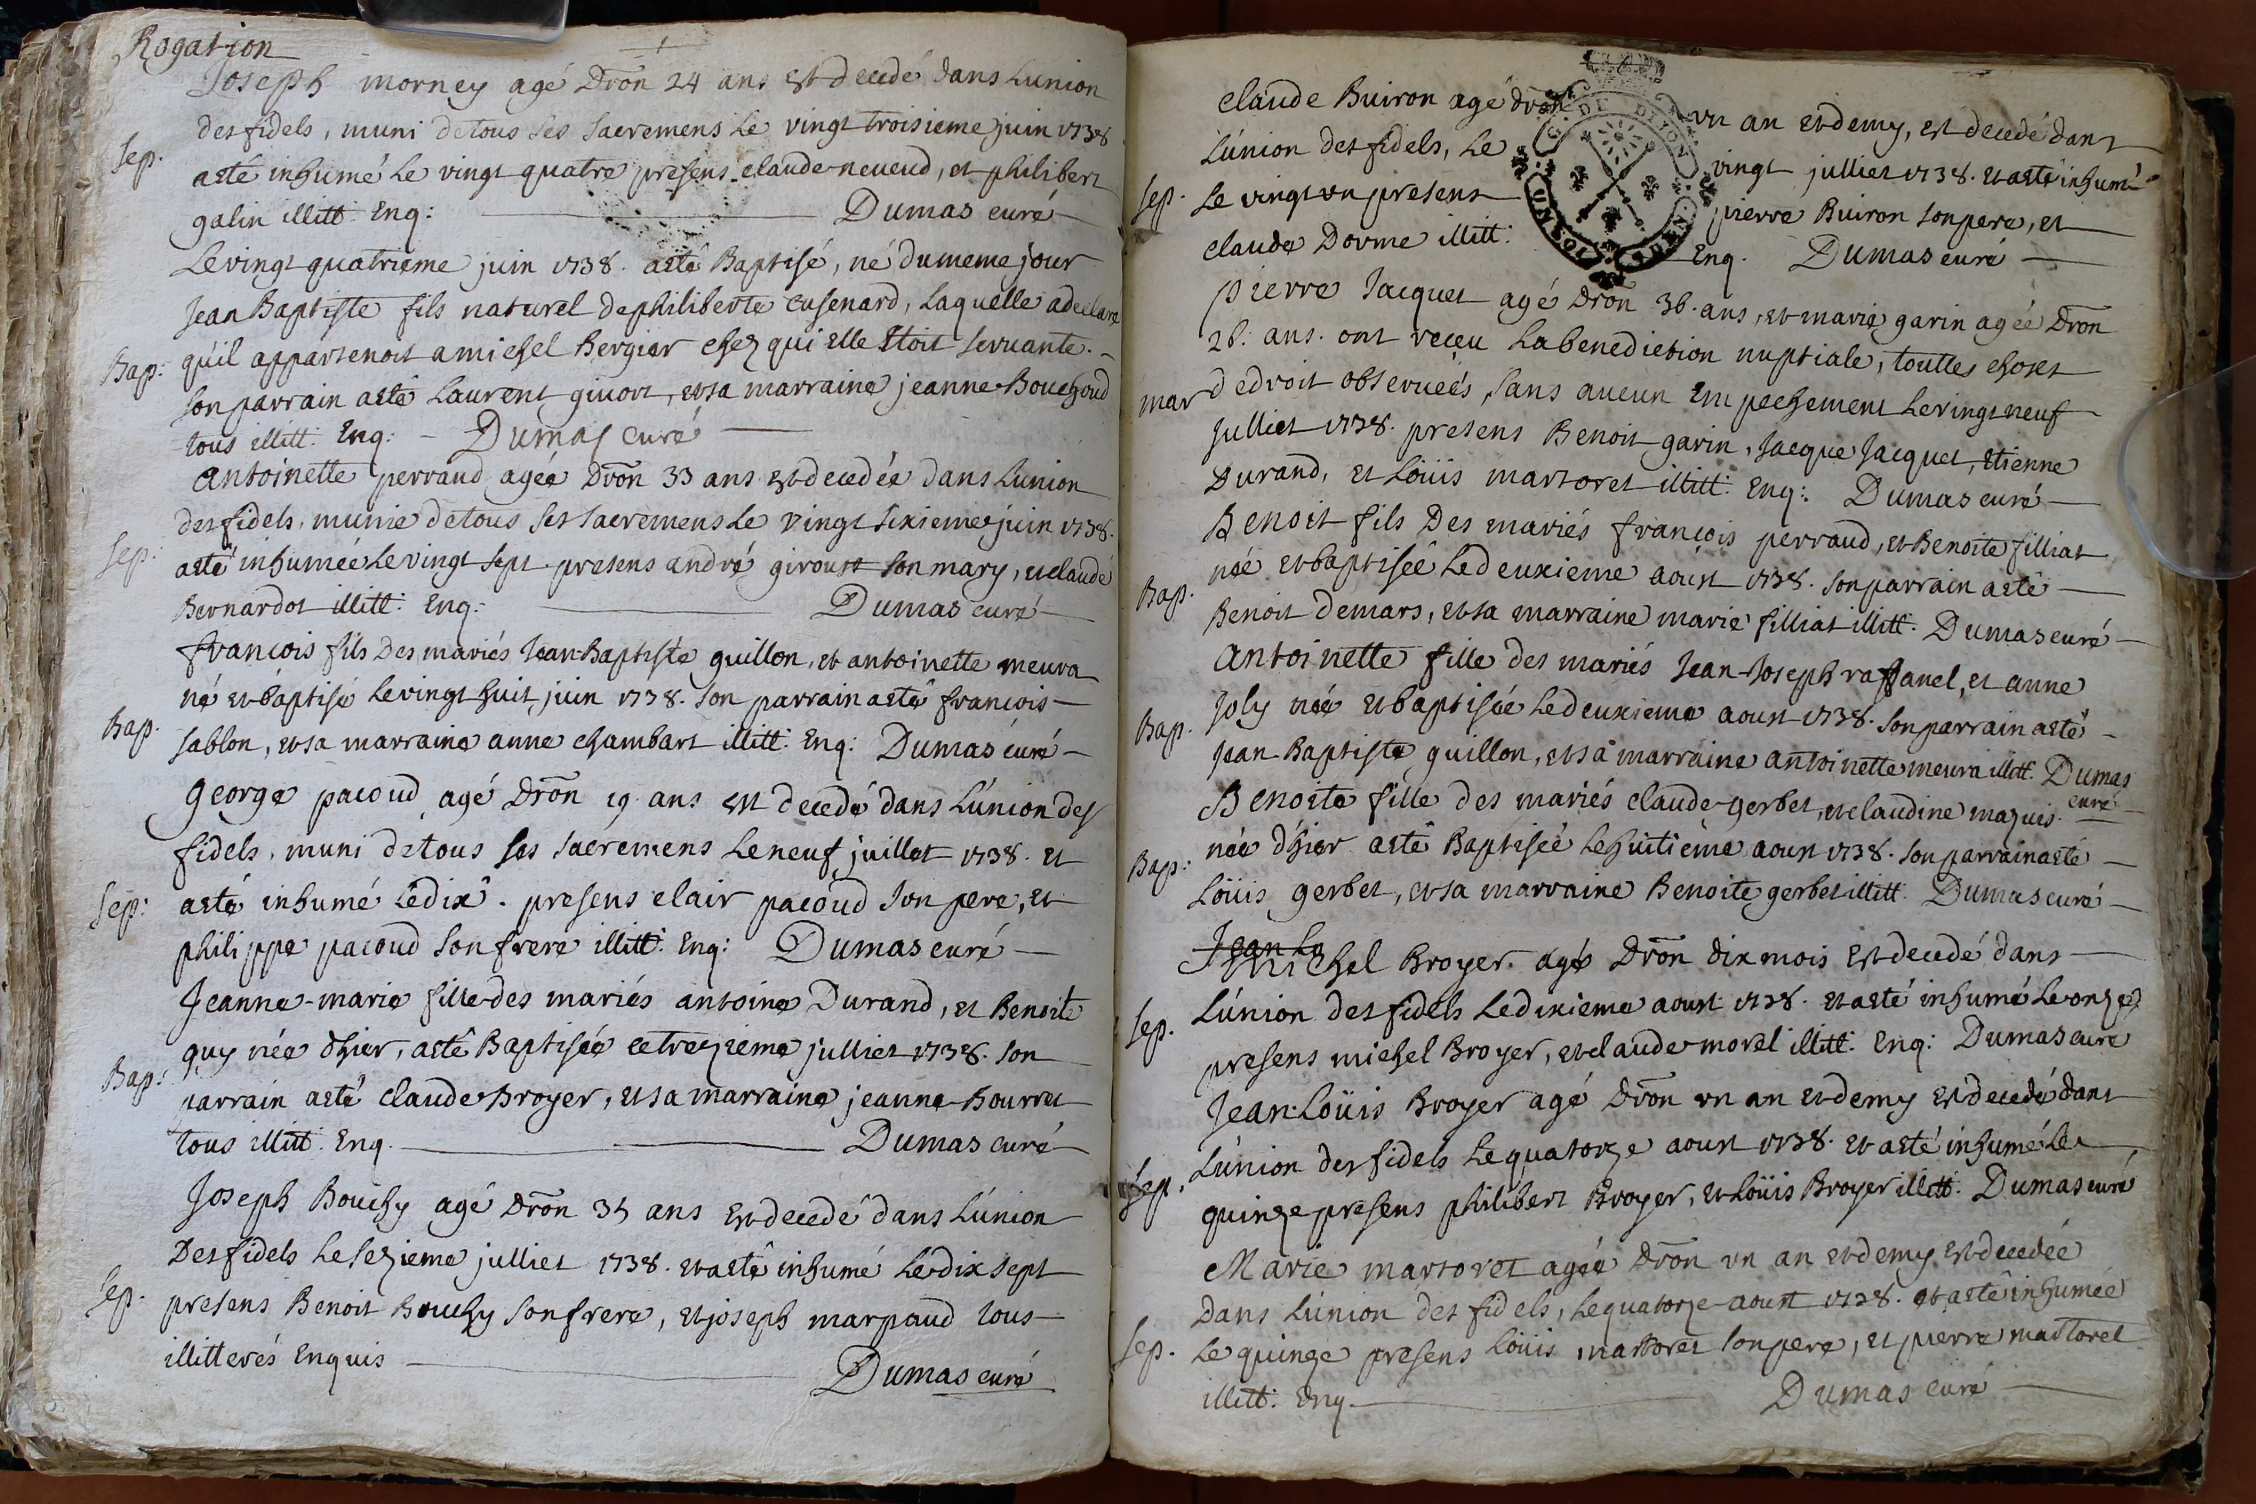 Rogation
Joseph morney agé Dron 24 ans Est decedé dans Lunion
des fidels, muni detous ses sacremens Le vingt troisieme juin 1738
Sep.
aeté inhumé Le vingt quatre presens claude neveud, et philibert
galin illitt. Enq: Dumas curé
Levingt quatrieme juin 1738. aeté Baptisé, né dumeme jour
Jean Baptiste fils naturel de philiberte cusenard, Laquelle adeclaré
Bap:
qu'il appartenoit a michel Bergier chez qui elle Etoit servante.
son parrain aeté Laurent givort, et sa marraine jeanne Bouchoud
tous illitt. Enq: Dumas curé
antoinette perraud agée Dron 33 ans est decedée dans Lunion
des fidels, munie detous ses sacremens Le vingt sixieme juin 1738.
Sep:
aeté inhumée Le vingt sept presens andré giroust son mary, et claude
Bernardot illitt: Enq: Dumas curé
françois fils des mariés Jean Baptiste guillon, et antoinette meura
né et baptisé Levingt huit juin 1738. son parrain aeté françois
Bap.
sablon, et sa marraine anne chambart illitt. Enq: Dumas curé
George pacoud agé Dron 19 ans Est decedé dans L'union des
fidels, muni detous ses sacremens Le neuf juillet 1738. et
Sep:
aeté inhumé Ledix. presens clair pacoud son pere, et
philippe pacoud son frere illitt: Enq: Dumas curé
Jeanne-marie fille des mariés antoine Durand, et Benoite
guy née d'hier, aeté Baptisée ce treizieme julliet 1738. son
Bap:
parrain aeté claude Broyer, et sa marraine jeanne Bourret
tous illitt. Enq. Dumas curé
Joseph Bouchy agé Dron 35 ans Est decedé dans Lúnion
Des fidels Le sezieme julliet 1738. et aeté inhumé Le dix sept
Sep.
presens Benoit Bouchy son frere, et joseph marpaud tous
illitterés Enquis
Dumas curé
claude Buiron agé dron un an et demy, est decedé dans
L'únion des fidels, Le vingt julliet 1738. et aeté inhumé
Sep.
Le vingt un presens pierre Buiron son pere, et
claude Dorme illitt: Enq. Dumas curé
G. DE DIJON
pierre Jacquet agé Dron 36. ans, et marie garin agée Dron
28. ans. ont receu La benediction nuptiale, touttes choses
mar
dedroit observeés, sans aucun Empechement Levingt neuf
julliet 1738. presens Benoit garin, Jacque Jacquet, Etienne
Durand, et Loüis martoret illitt: Enq: Dumas curé
Benoit fils Des mariés françois perraud, et Benoite filliat
née et baptisée Ledeuxieme aoust 1738. son parrain aeté
Bap.
Benoit demars, et sa marraine marie filliat illitt. Dumas curé
Antoinette fille des mariés Jean-Joseph raffanel, et anne
Joly née et baptisée Ledeuxieme aoust 1738. son parrain aeté
Bap.
Jean Baptiste guillon, et sa marraine antoinette meura illitt. Dumas
curé
Benoite fille des mariés claude gerbet, et claudine mazuis.
née d'hier aeté Baptiseé Lehuitieme aoust 1738. son parrain aeté
Bap:
Loüis gerbet, et sa marraine Benoite gerbet illitt. Dumas curé
Jean Lo
Michel Broyer. agé Dron dix mois Est decedé dans
Sep.
Lúnion des fidels Ledixieme aoust 1738. et aeté inhumé Le onze
presens michel Broyer, et claude morel illitt: Enq: Dumas curé
Jean-Loüis Broyer agé Dron un an et demy Est decedé dans
Sep.
Lúnion des fidels Le quatorze aoust 1738. et aeté inhumé Le
quinze presens philibert Broyer, et Loüis Broyer illitt. Dumas curé
Marie martoret agée Dron un an et demy Est decedée
dans Lúnion des fidels, Le quatorze aoust 1738. et aeté inhumée
Sep.
Le quinze presens Loüis martoret son pere, et pierre martoret
illitt. Enq. Dumas curé